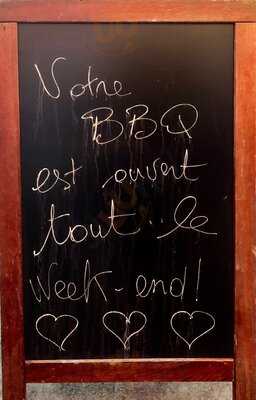 Notre
BBQ
est ouvert
tout le
Week-end!